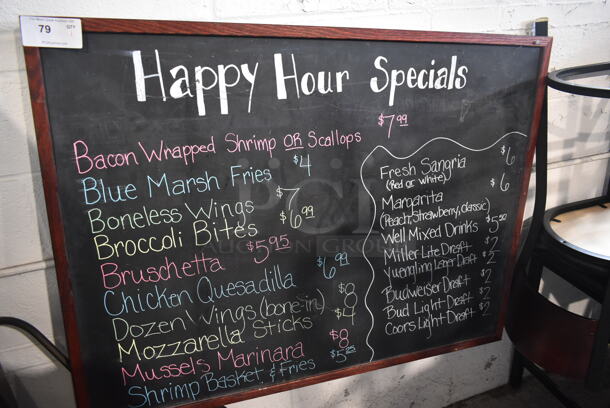 79
QTY
Happy Hour Specials
Bacon Wrapped Shrimp OR Scallops $7.99
Blue Marsh Fries $4
Boneless Wings $7
Broccoli Bites $6.99
Bruschetta $5.95
Chicken Quesadilla $6.99
Dozen Wings (bone-in) $8
Mozzarella Sticks $4
Mussels Marinara $8
Shrimp Basket & fries
Fresh Sangria $6
(Red or White)
Margarita $6
(Peach, Strawberry, classic)
Well Mixed Drinks
Miller Lite Draft $2
Yuengling Lager Draft $2
Budweiser Draft $2
Bud Light Draft $2
Coors Light Draft $2
AUCTION GROUP